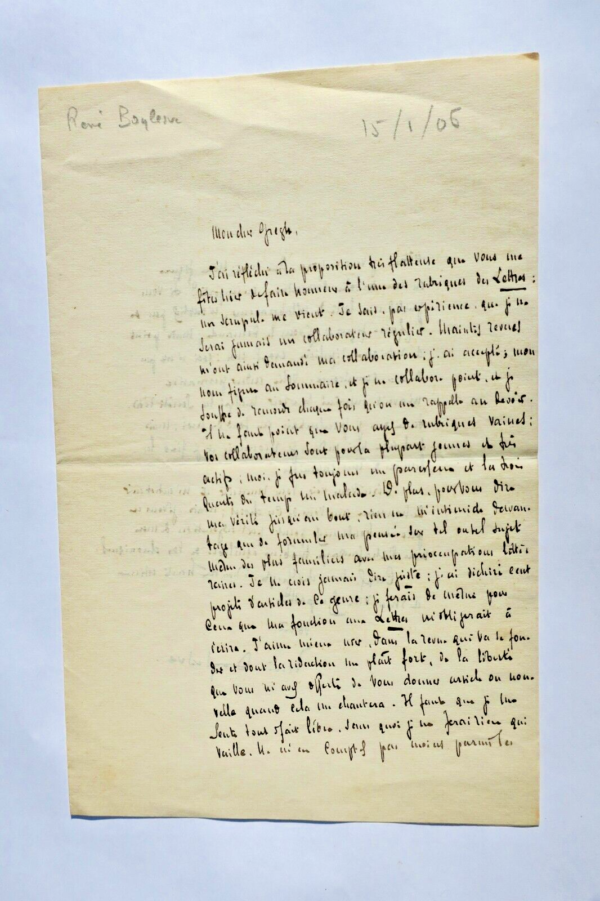 René Boylesve
15/1/06
Mon cher Gregh,
J'ai réfléchi à la proposition très flatteuse que vous me
faire honneur à l'une des rubriques des Lettres :
un scrupule me vient. Je sais, par expérience, que je ne
serai jamais un collaborateur régulier. Maintes revues
m'ont ainsi demandé ma collaboration ; j'ai accepté ; mon
nom figure au sommaire, et je ne collabore point, et je
souffre de remords chaque fois qu'on me rappelle au devoir.
Il ne faut point que vous ayez de rubriques vaines ;
vos collaborateurs sont pour la plupart jeunes et très
actifs, moi, je fus toujours un paresseux et les trois
quarts du temps un malade. De plus, pour vous dire
ma vérité jusqu'au bout, rien ne m'intimide davan-
tage que de formuler ma pensée sur tel ou tel sujet
même des plus familiers avec mes préoccupations litté-
raires. Je ne crois jamais dire juste ; j'ai déchiré cent
projets d'articles de ce genre ; je ferais de même pour
ceux que ma fonction aux Lettres m'obligerait à
écrire. J'aime mieux user, dans la revue qui va se fon-
der et dont la rédaction me plaît fort, de la liberté
que vous m'avez offerte de vous donner article ou nou-
velle quand cela me chantera. Il faut que je me
sente tout à fait libre, sans quoi je ne ferai rien qui
vaille. Ne m'en comptez pas moins parmi les